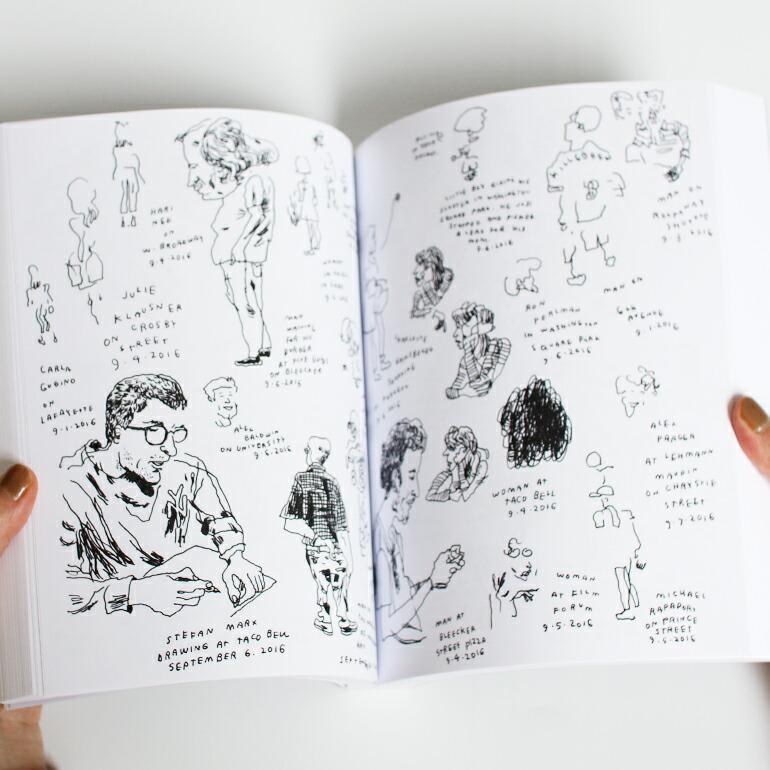 HARI
NEF
ON
W. BROADWAY
9.4.2016
JULIE
KLAUSNER
ON
CROSBY
STREET
9.4.2016
CARLA
GUGINO
ON
LAFAYETTE
9.1.2016
MAN
WAITING
FOR HIS
BURGER
AT FIVE GUYS
ON BLEECKER
9.6.2016
ALEC
BALDWIN
ON UNIVERSITY
9.6.2016
NY
STEFAN MARX
DRAWING AT TACO BELL
SEPTEMBER 6. 2016
LITTLE BOY RIDING HIS
SCOOTER IN WASHINGTON
SQUARE PARK. HE JUST
STOPPED AND PICKED
A LEAF FOR HIS
MOM.
9.6.2016
MAN ON
9.3.2016
RON
PERLMAN
IN WASHINGTON
SQUARE PARK
9.6.2016
MAN ON
6TH
AVENUE
9.1.2016
WOMAN AT
TACO BELL
9.4.2016
ALEX
PRAGER
AT LEHMANN
MAUPIN
ON CHRYSTIE
STREET
9.7.2016
MAN AT
BLEECKER
STREET PIZZA
9.4.2016
WOMAN
AT FILM
FORUM
9.5.2016
MICHAEL
RAPAPORT
ON PRINCE
STREET
9.5.2016